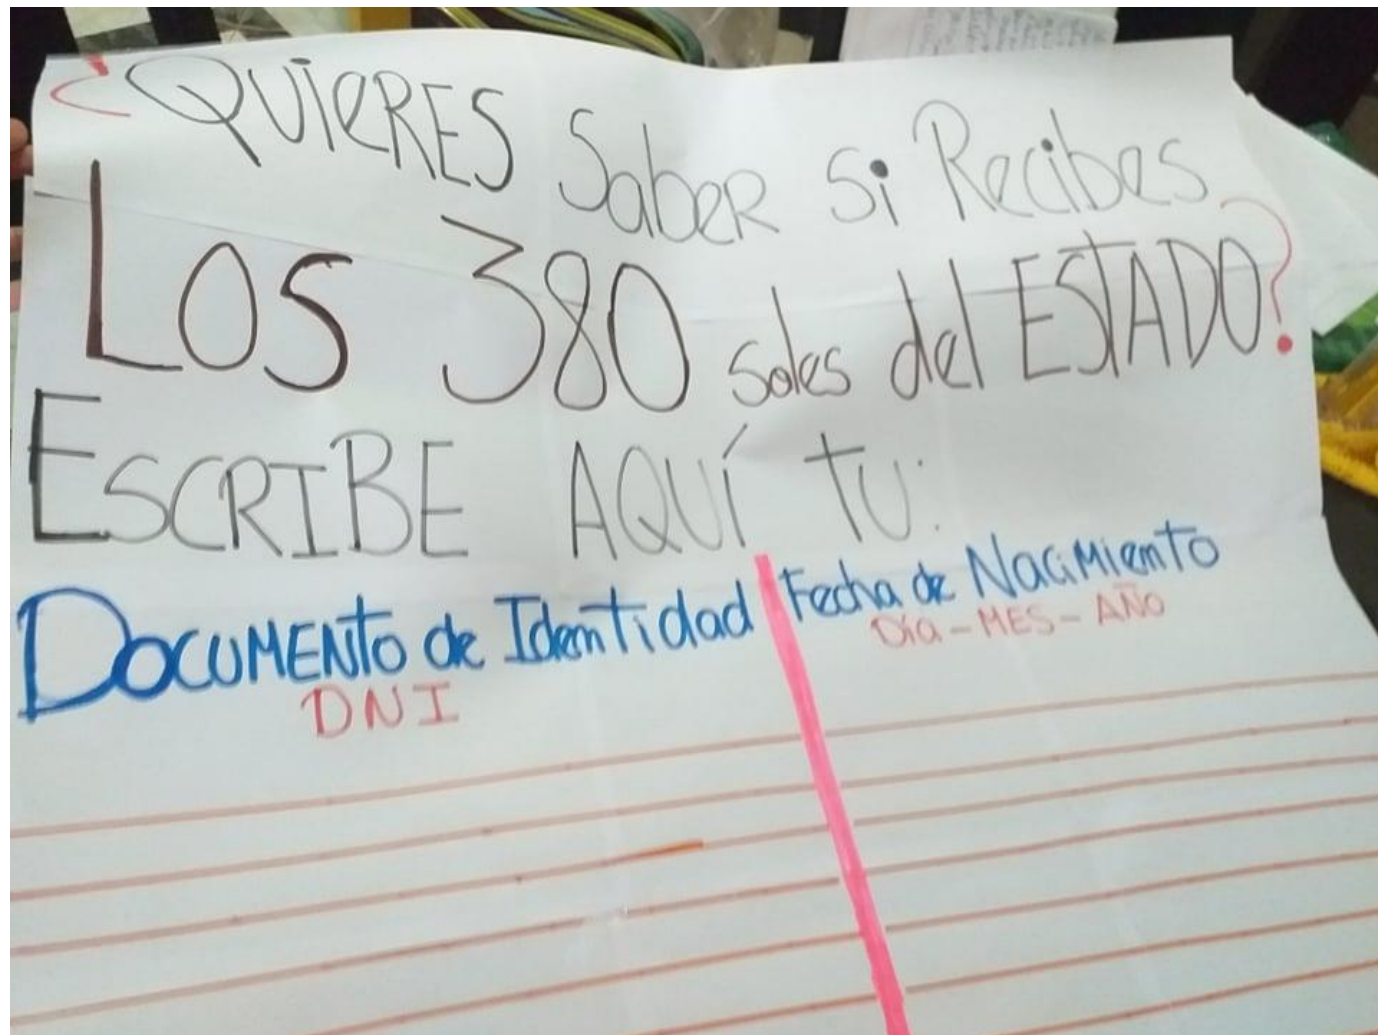 ¿QUIERES Saber si Recibes
Los 380 soles del ESTADO?
ESCRIBE AQUÍ tu:
DOCUMENto de Identidad
DNI
Fecha de NaciMiento
Día - MES - AÑO